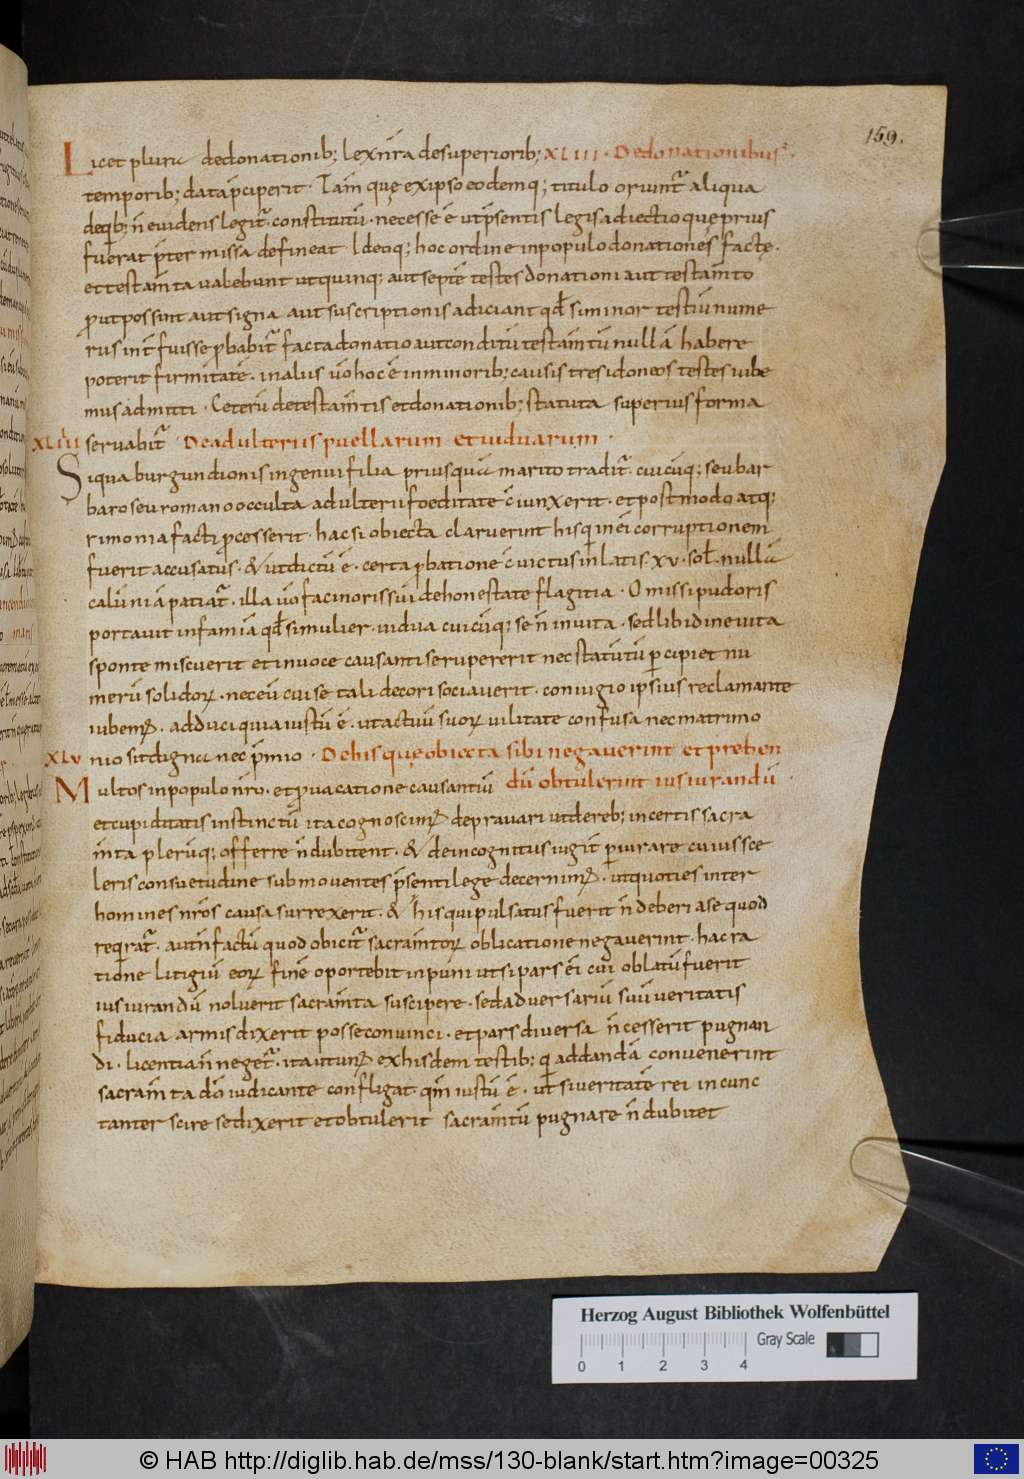 159.
Licet plura de donationib; lex nr̄a de superiorib; XLIII · De donationibus ·
temporib; data p̄ciperit · Tam̄ quę ex ipso eodemq; titulo oriunt̃ aliqua
de qb; n̄ evidens legit̃ constitutū · necesse ē ut p̄sentis legis adiectio quę prius
fuerat p̄ter missa defineat Ideoq; hoc ordine in populo donationes factę ·
et testam̄ta valebunt ut quinq; aut septē testes donationi aut testam̄to
ꝓut possint aut signa aut suscriptionis adiciant qd̄ si minor testiū nume
rus int̄fuisse ꝓbabit̃ facta donatio aut conditū testam̄tū nullā habere
poterit firmitatē · in alus ūo hoc ē in minorib; causis tres idoneos testes iube
mus admitti · Ceterū de testam̄tis et donationib; statuta superius forma
XLIIII servabit̃ · De adulteriis puellarum et viduarum ·
Siqua burgundionis ingenui filia priusquā marito tradit̃ cuicūq; seu bar
baro seu romano occulta adulterii foeditate c̄iunxerit · et postmodo atq;
rimonia facti ꝓcesserit · hac si obiecta claruerint his qui in ei corruptionem
fuerit accusatus · & ut dictū ē · certa ꝓbatione c̄victus inlatis · xv · sol̄ · nullā
calūniā patiat̃ · illa ūo facinoris sui dehonestate flagitia · O missi pudoris
portavit infamiā qd̄ si mulier · vidua cuicūq; se n̄ invita · sed libidine vita
sponte miscuerit et in voce causanti seruperit nec statutū ꝑcipiet nu
merū solidoꝝ · nec eū cui se tali decori sociaverit · coniugio ipsius reclamante
iubem; · adduci quia iustū ē · ut actuū suoꝝ vilitate confusa nec matrimo
XLV nio sit digna nec p̄mio · De his quę obiecta sibi negaverint et preben
Multos in populo nr̄o · et ꝓvacatione causantiū dū obtulerint iusiurandū ·
et cupiditatis instinctū ita cognoscim; depravari ut de reb; incertis sacra
m̄ta plerūq; offerre n̄ dubitent · & de incognitus iugit̄ ꝑiurare cuius sce
leris consuetudine submoventes p̄senti lege decernim; · ut quoties inter
homines nr̄os causa surrexerit · & his qui pulsatus fuerit n̄ deberi a se quod
reqrat̃ · aut n̄ factū quod obicit̃ sacram̄toꝝ oblicatione negaverint · hac ra
tione litigiū eoꝝ finē oportebit inpuni ut si pars ei cui oblatū fuerit
iusiurandū noluerit sacram̄ta suscipere · sed adversariū suū veritatis
fiducia armis dixerit posse convinci · et pars diversa n̄ cesserit pugnan
di · licentia n̄ neget̃ · ita ut un; ex hisdem testib; qui ad danda convenerint
sacram̄ta dō iudicante confligat · qm̄ iustū ē · ut si veritatē rei incunc
tanter scire se dixerit et obtulerit sacram̄tū pugnare n̄ dubitet
Herzog August Bibliothek Wolfenbüttel
Gray Scale
0 1 2 3 4
© HAB http://diglib.hab.de/mss/130-blank/start.htm?image=00325